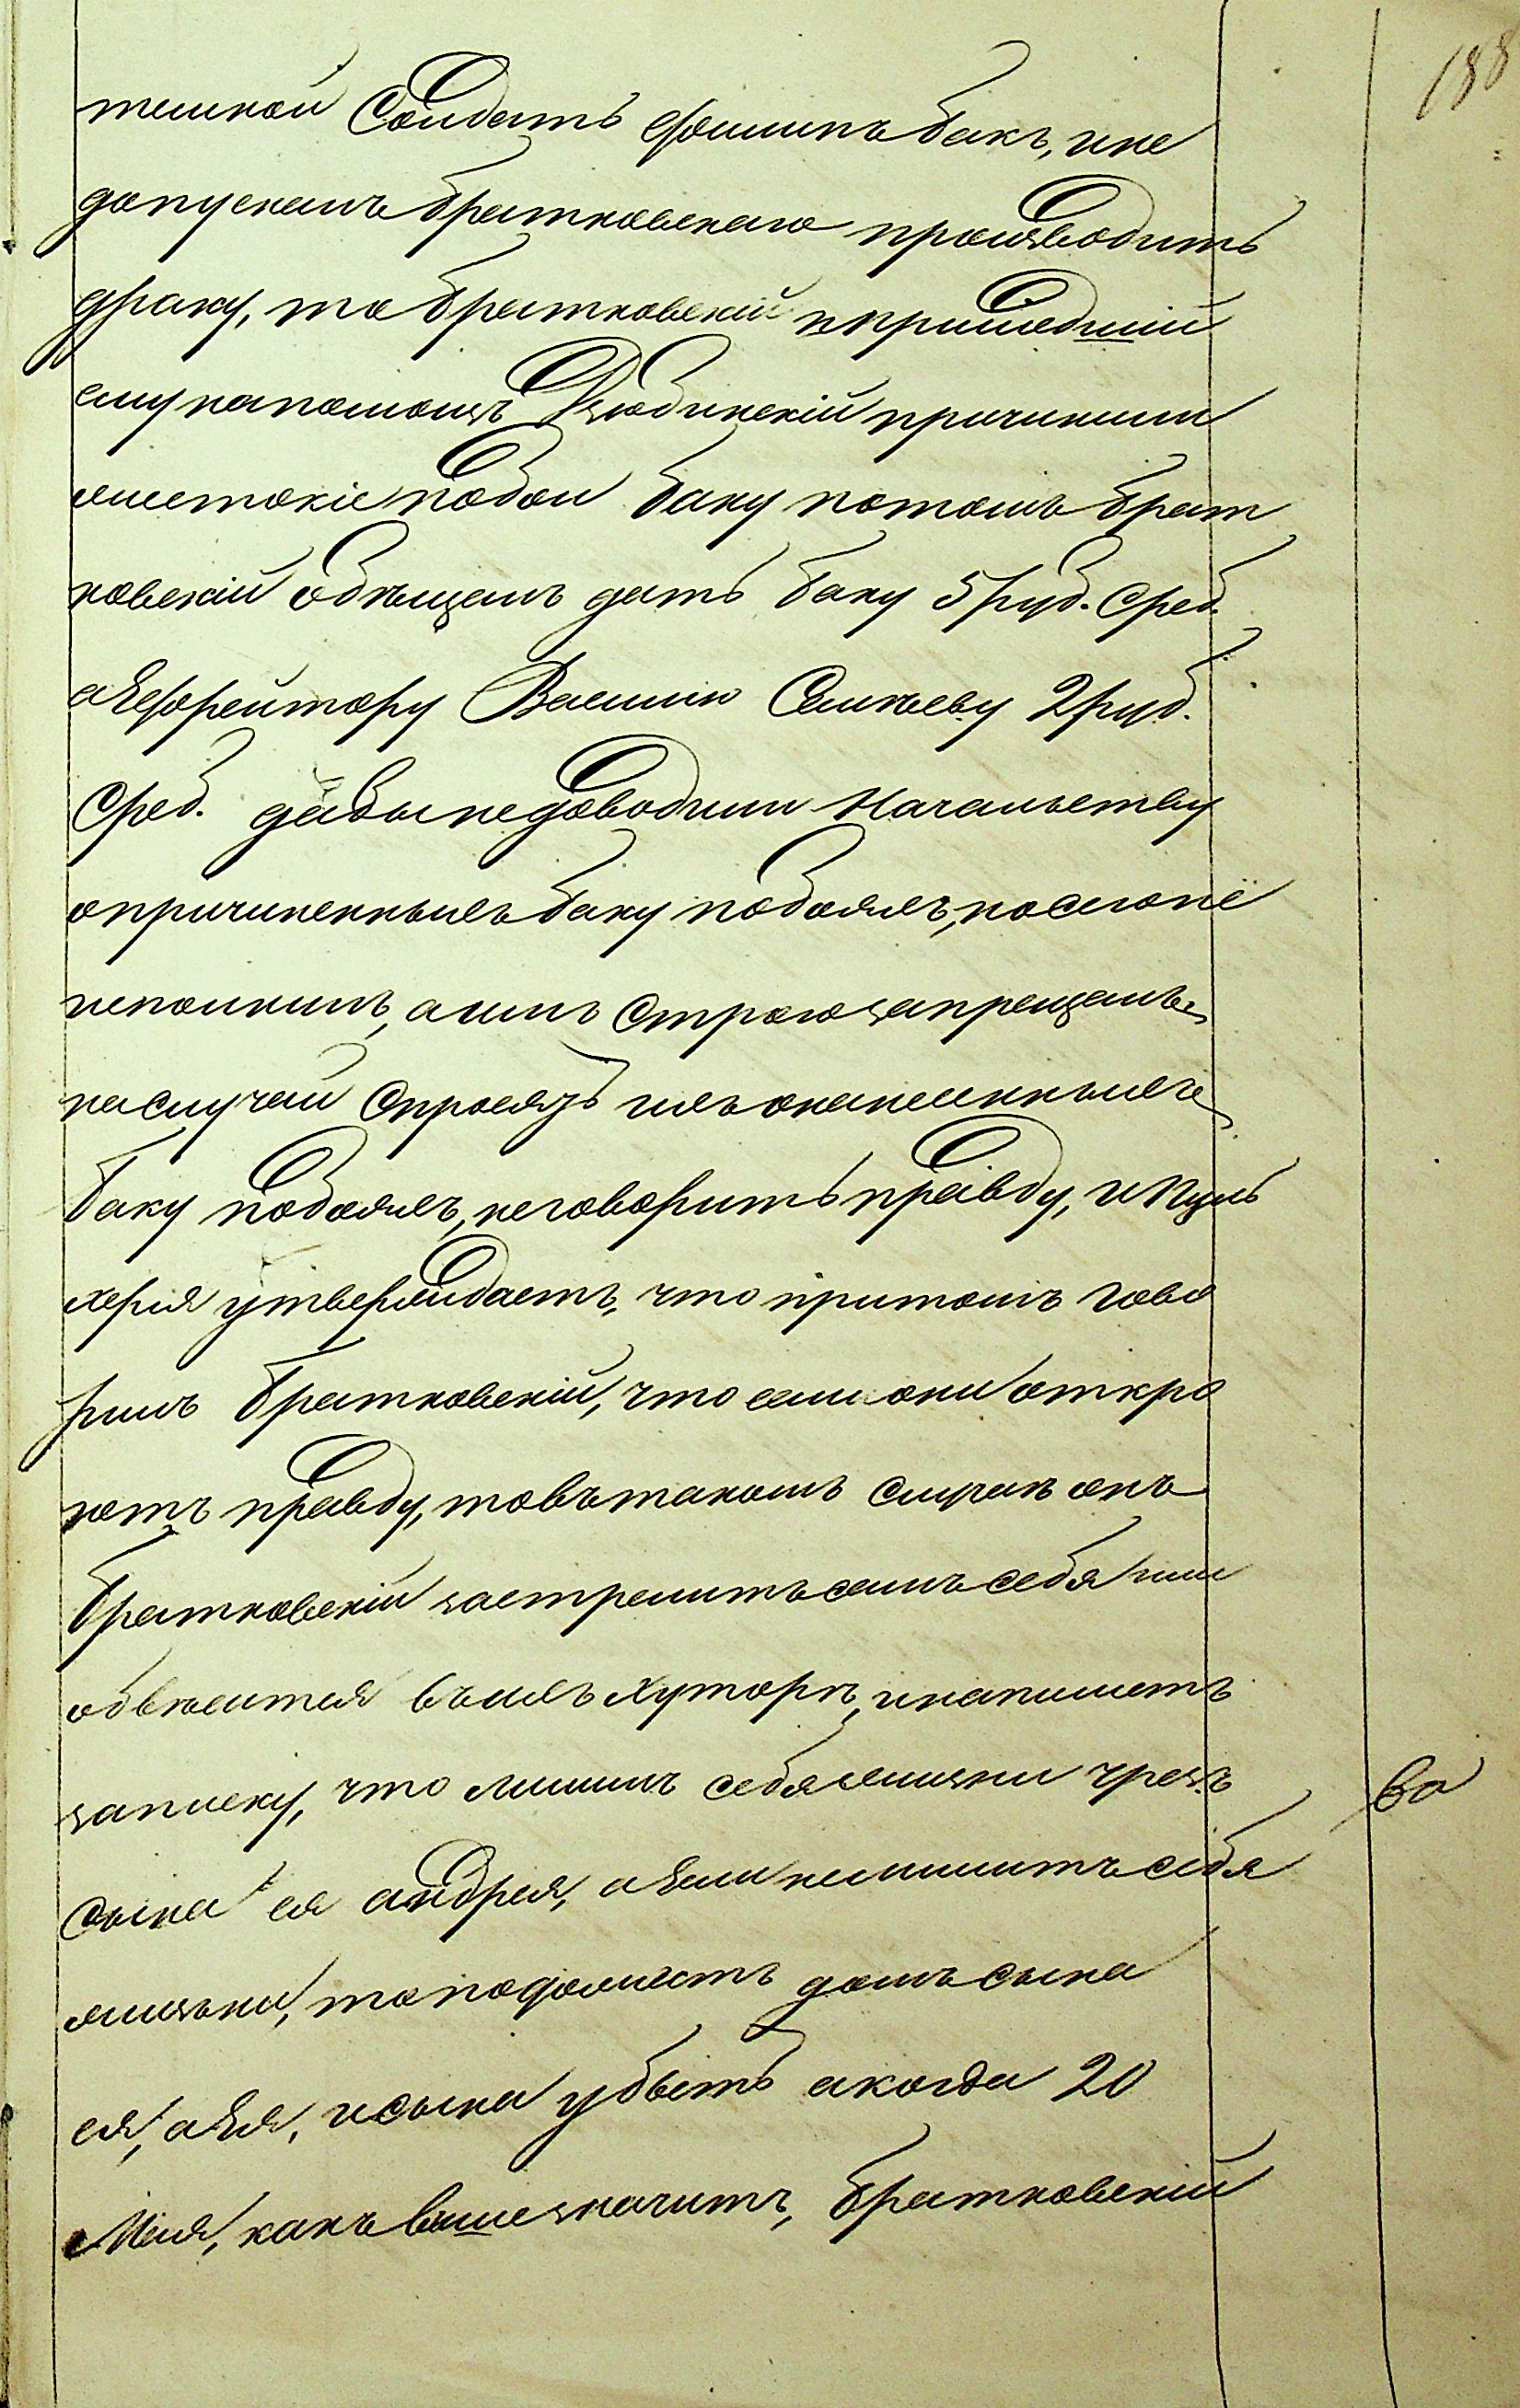 188
тельной Солдатъ Фомитъ бакъ, и не
допускалъ братковскаго производить
драку, то братковскій и пришедшій
ему на помощь Кзюбинскій причинили
жестокіе побои баку потомъ брат
ковскій обѣщалъ дать баку 5 руб. Среб.
а Ефрейтору Василію Семкѣеву 2 руб.
Среб. дабы не доводили Начальству
о причиненныхъ баку побояхъ, но сего не
исполнилъ, а имъ строго запрещалъ
на случай спросятъ ихъ о нанесенныхъ
баку побояхъ, не говорить правду, и Пуль
херія утверждаетъ, что притомъ гово
рилъ братковскій, что если они откро
ютъ правду, то въ такомъ случаѣ онъ
братковскій застрелитъ самъ себя или
обвѣсится въ ихъ хуторѣ, и напишетъ
записку, что лишилъ себя жизни чрезъ
во
сына ея андрея, а Если не лишитъ себя
жизьни, то подожжетъ домъ сына
ея, а Ея, и сына убьетъ а когда 20
Мая, какъ выше значитъ, братковскій